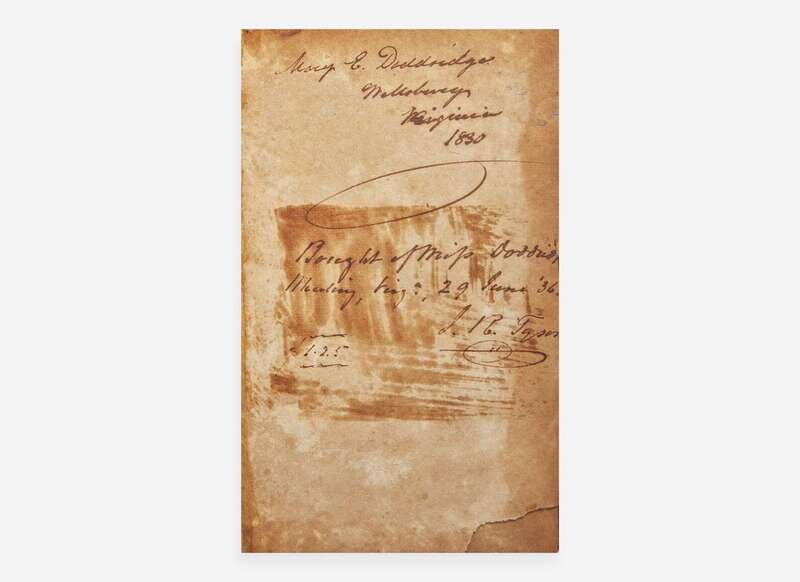 Mary E. Doddridge
Wellsburg
Virginia
1830
Bought of Miss Doddrid
Wheeling, Virga, 29 June '36.
J. R. Tyson